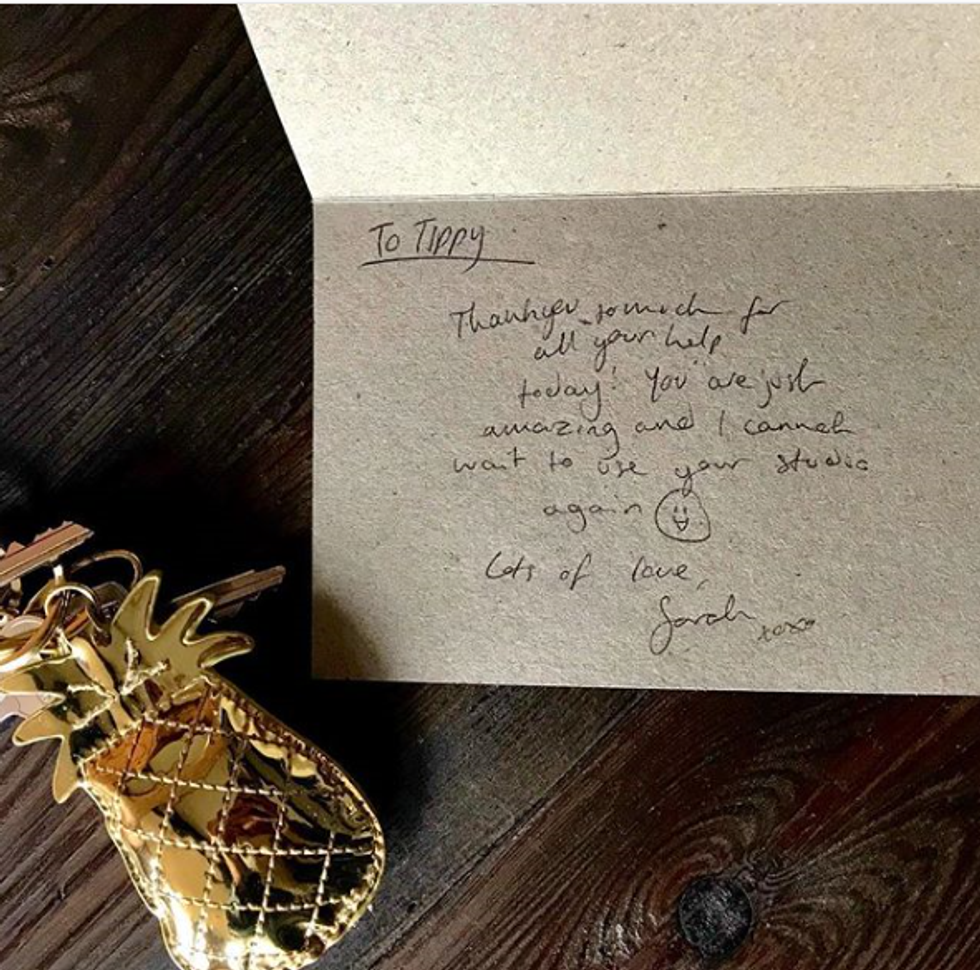 To Tippy
Thankyou so much for
all your help
today! You are just
amazing and I cannot
wait to use your studio
again
Lots of love,
Sarah xoxo